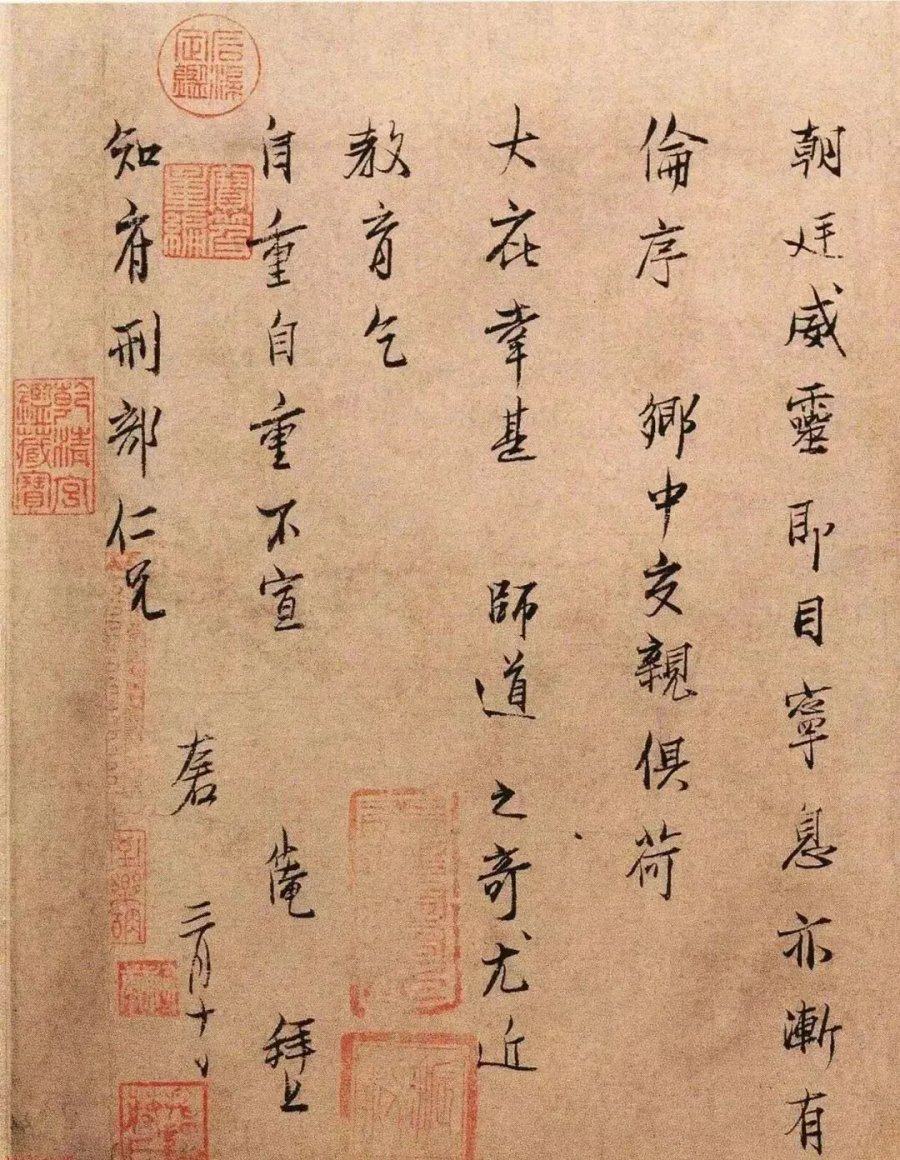 朝廷威靈即目寧息亦漸有
倫序 鄉中交親俱荷
大庇幸甚 師道之奇尤近
教育乞
自重自重不宣 拜上
知府刑部仁兄
三月十日
石渠定鑑
寶笈重編
乾清宮鑑藏寶